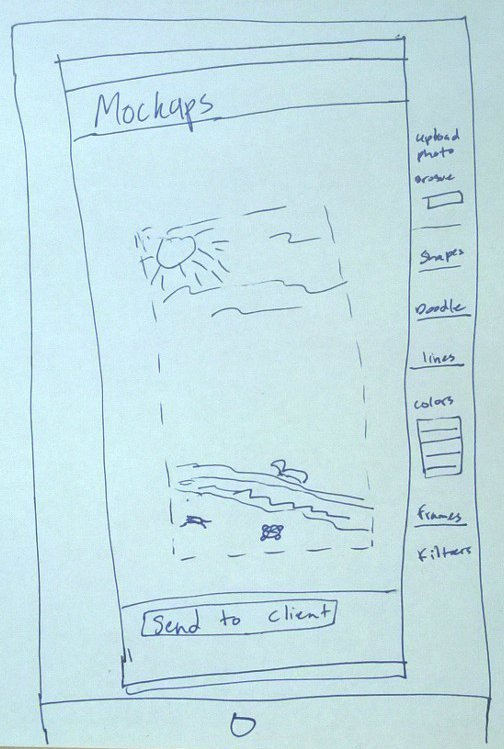 Mockups
upload
photo
erase
Shapes
Doodle
lines
colors
frames
Filters
Send to client